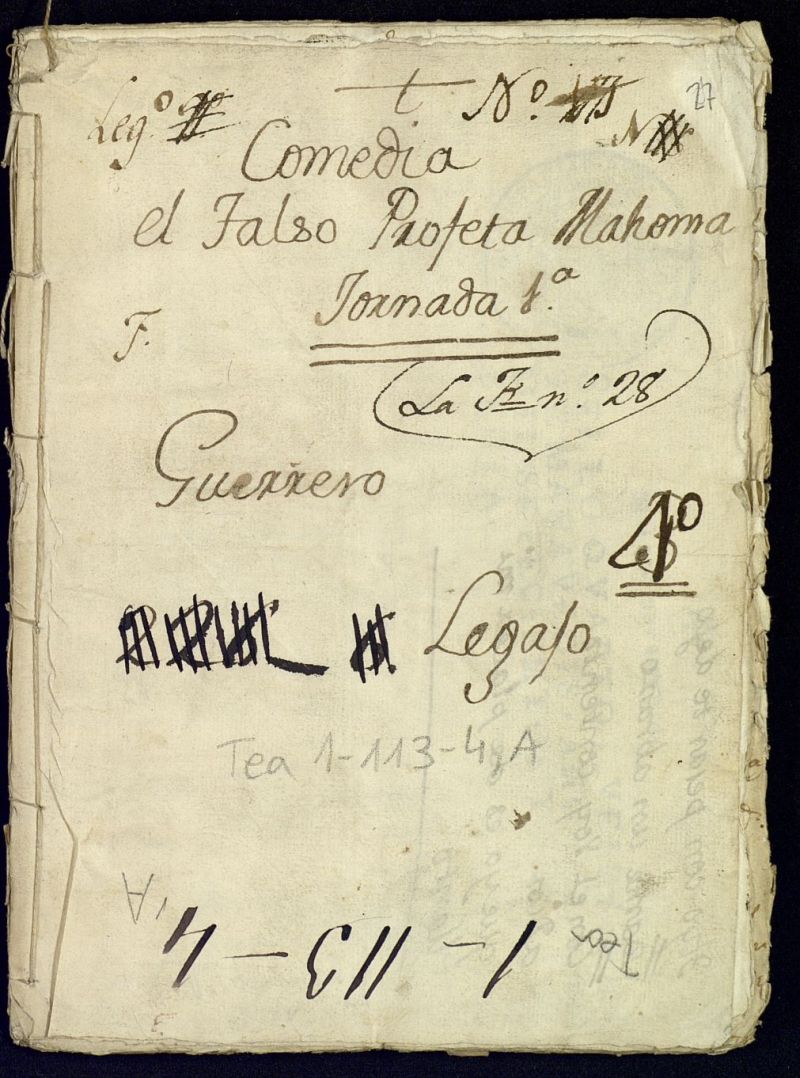 Leg.º
t Nº.
27
N
Comedia
el Falso Profeta Mahoma
Jornada 1.ª
F.
La F n.º 28
Guerrero
1º
Legajo
Tea 1-113-4, A
Tea 1-113-4, A